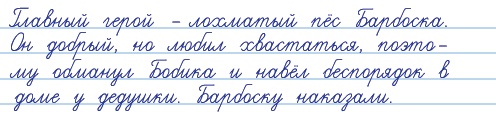 Главный герой - лохматый пёс Барбоска.
Он добрый, но любил хвастаться, поэто-
му обманул Бобика и навёл беспорядок в
доме у дедушки. Барбоску наказали.